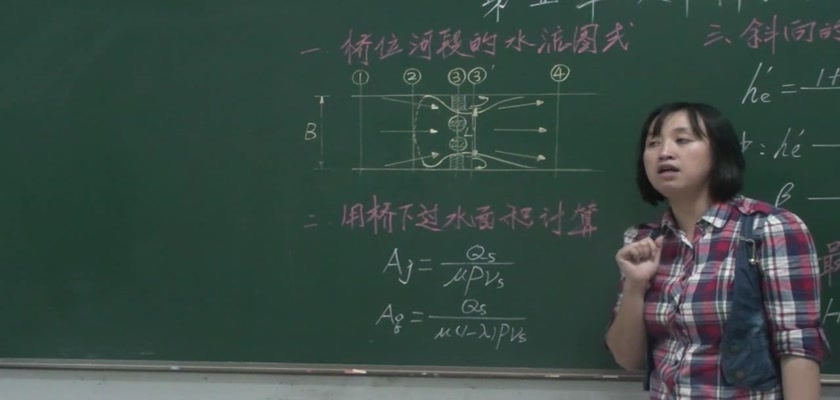 第五章
一 桥位河段的水流图式
① ② ③ ③' ④
B
二 用桥下过水面积计算
Aj = Qs / μPVs
Ag = Qs / μ(1-λ)PVs
三、斜向的
h'e = 1+
: h'e —
β —